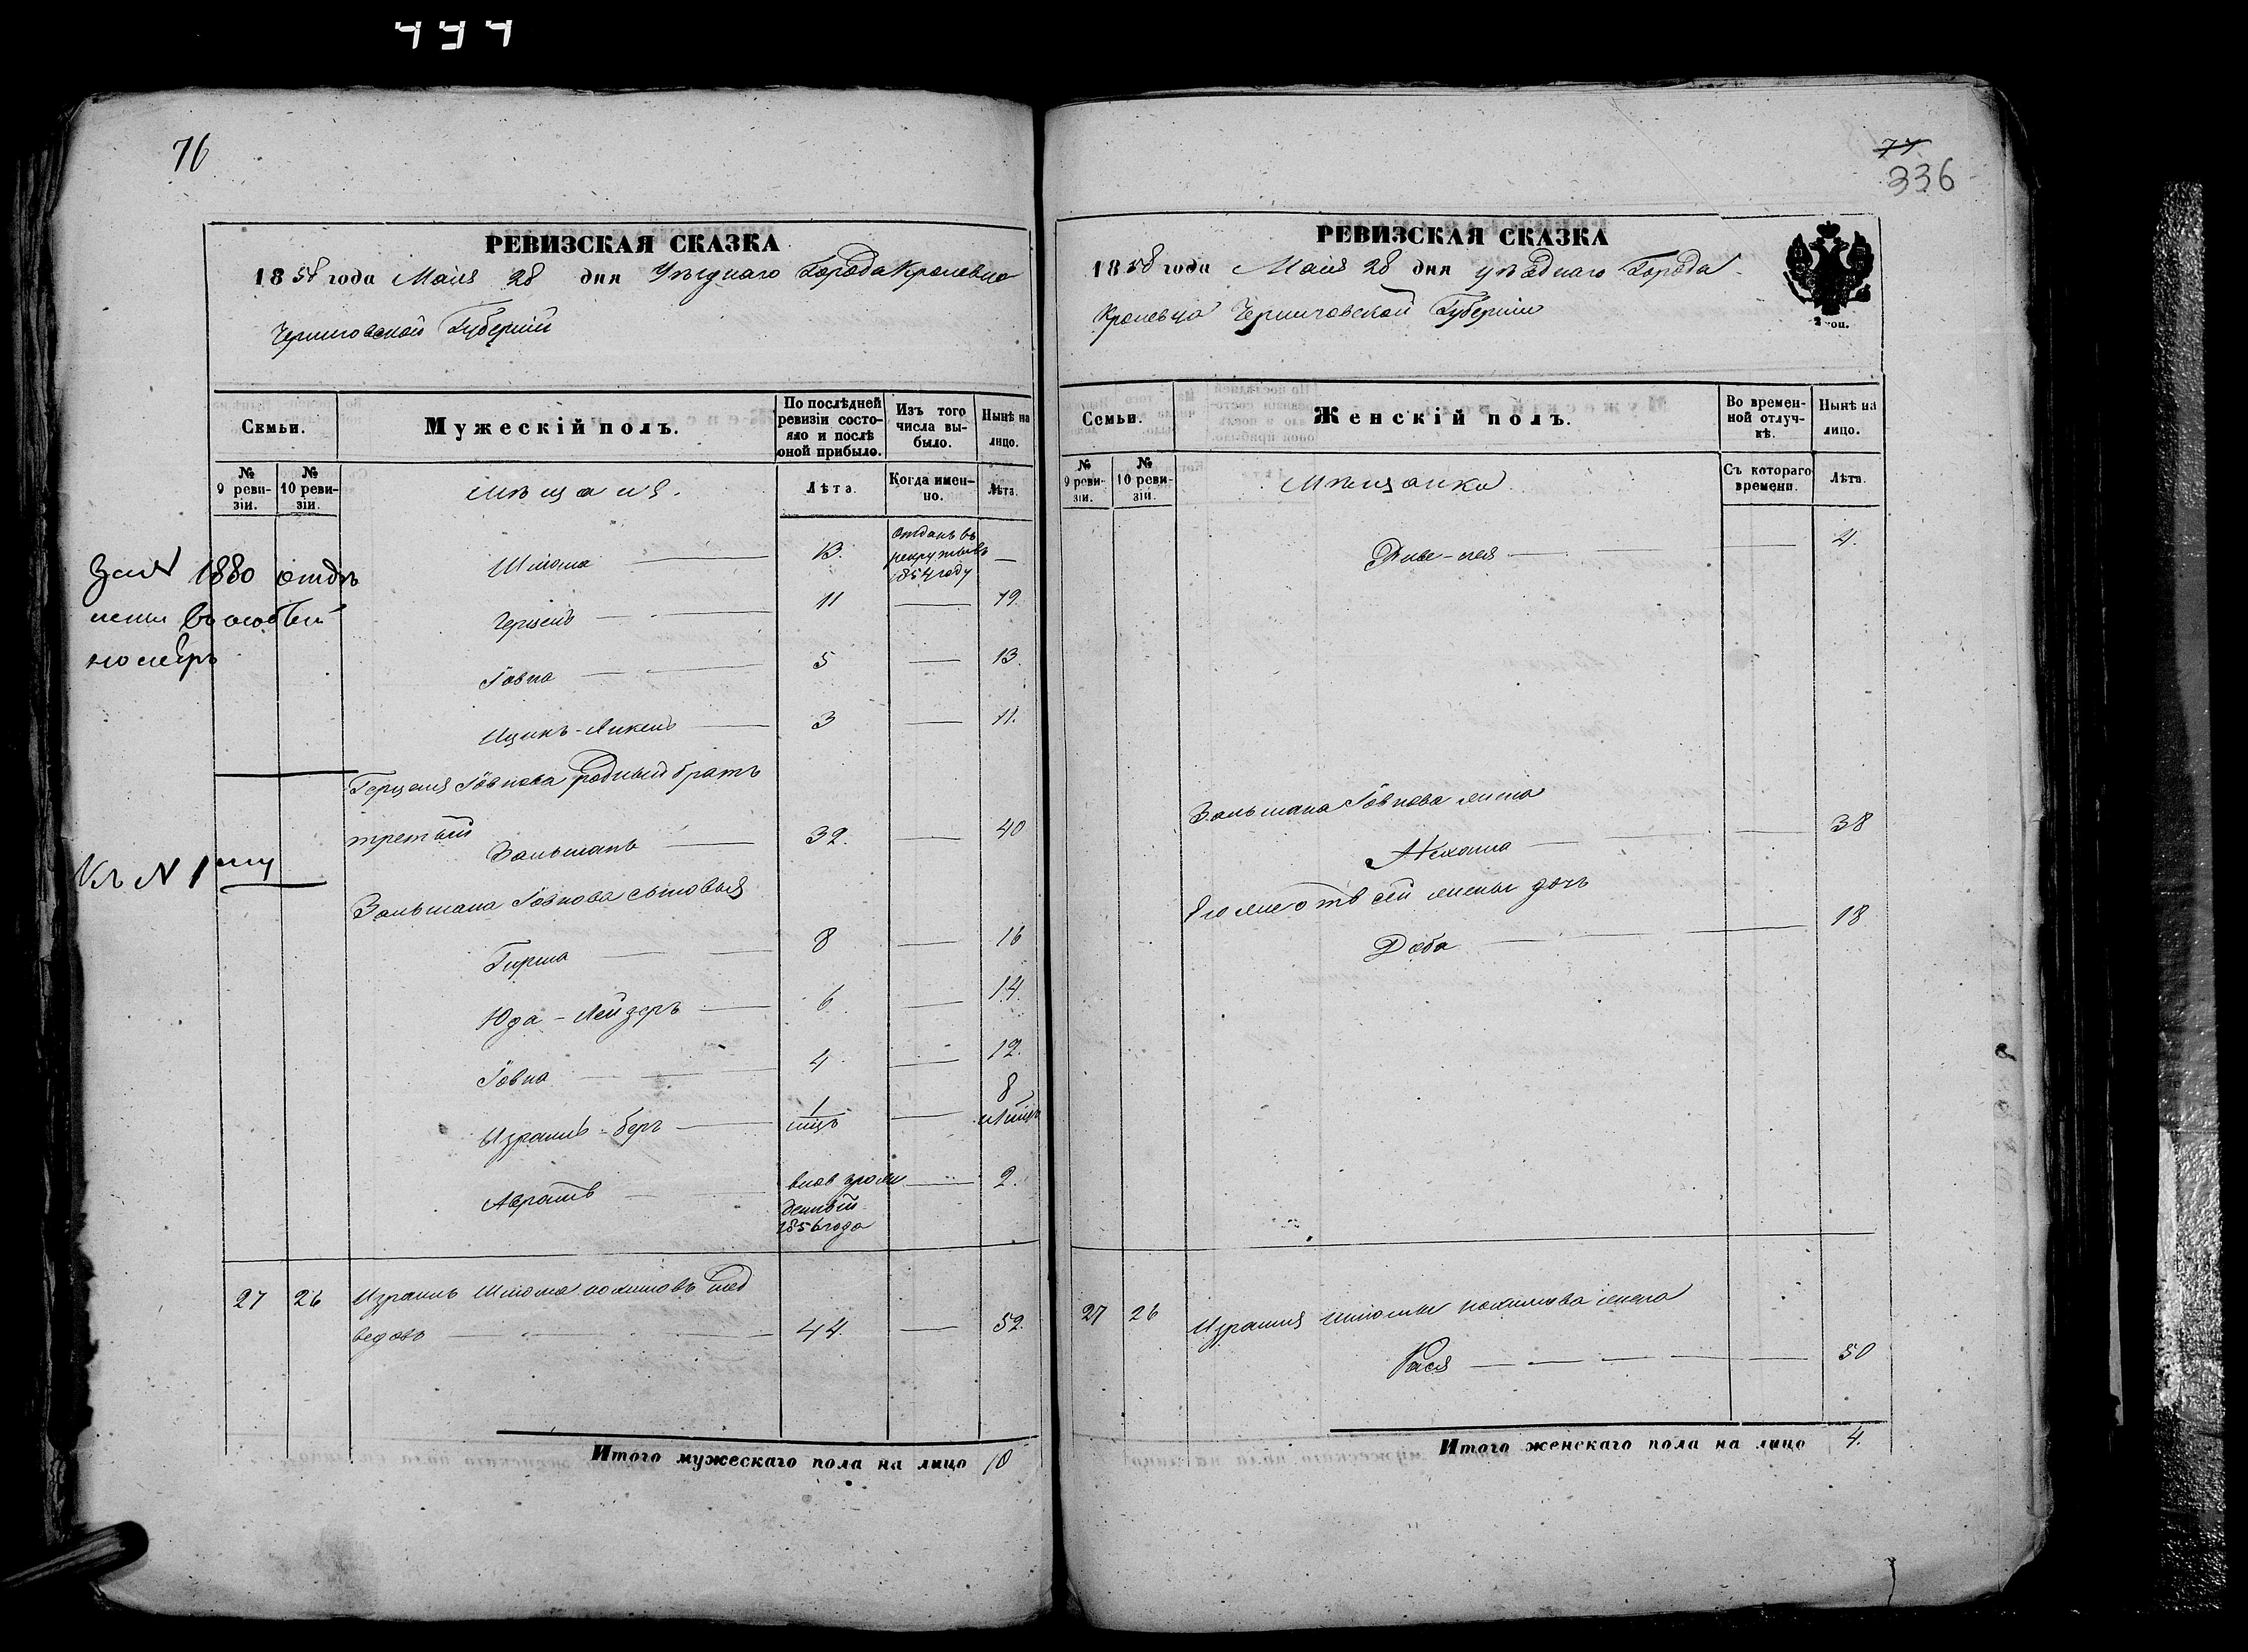 76
РЕВИЗСКАЯ СКАЗКА
1858 года Маия 28 дня Уѣзднаго Города Кролевца
Черниговской Губерніи
Семьи.
Мужескій полъ.
По послѣдней ревизіи состояло и послѣ оной прибыло.
Изъ того числа выбыло.
Нынѣ на лицо.
№ 9 ревизіи.
№ 10 ревизіи.
Мѣщаня.
Лѣта.
Когда именно.
Лѣта.
Шлома 13. Отданъ въ рекруты въ 1854 году —
1880 отдѣ
лены въ особый
номеръ
Герцель 11 — 19.
Іовна 5 — 13.
Ицикъ-Янкель 3 — 11.
Герцеля Іовнова родный братъ
третьий
Зальманъ 32. — 40
Къ N 1му
Зальмана Іовнова сыновья
Гирша 8 — 16
Юда-Лейзеръ 6. — 14.
Іовна 4 — 12.
Израиль-беръ 1 — 8
Абрамъ внов врож
денный 1856 года — 2.
27 26 Израиль Шлома Мед
ведовъ 44. — 52.
Итого мужескаго пола на лицо 10
77
336
РЕВИЗСКАЯ СКАЗКА
1858 года Маия 28 дня уѣзднаго Города
Кролевца Черниговской Губерніи
Семьи.
Женскій полъ.
Во временной отлучкѣ.
Нынѣ на лицо.
№ 9 ревизіи.
№ 10 ревизіи.
Мѣщанки
Съ котораго времени.
Лѣта.
4.
Зальмана Іовнова жена
Нехама — 38
Его же отъ сей жены дочь
Доба — 18
27 26 Израиля Шломы жена
Рася — 50
Итого женскаго пола на лицо 4.